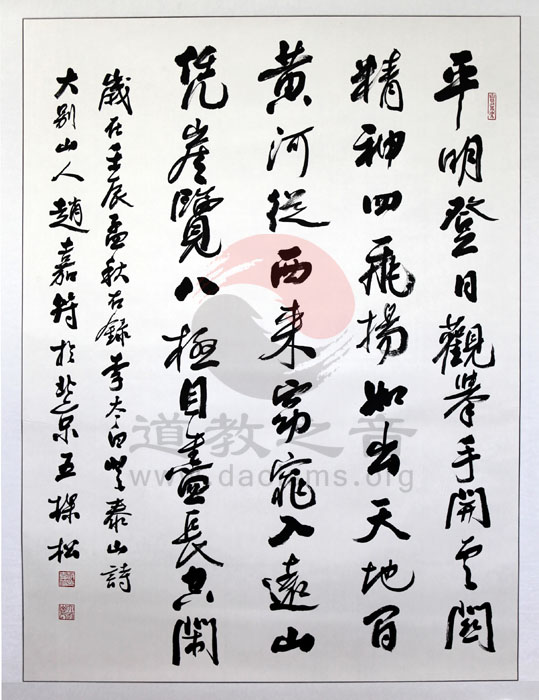 平明登日觀舉手開云關
精神四飛揚如出天地間
黃河從西來窈窕入遠山
凭崖覽八極目盡長空閑
歲在壬辰孟秋右錄李太白登泰山詩
大别山人趙嘉符於北京五棵松
道教之音
www.daoisms.org